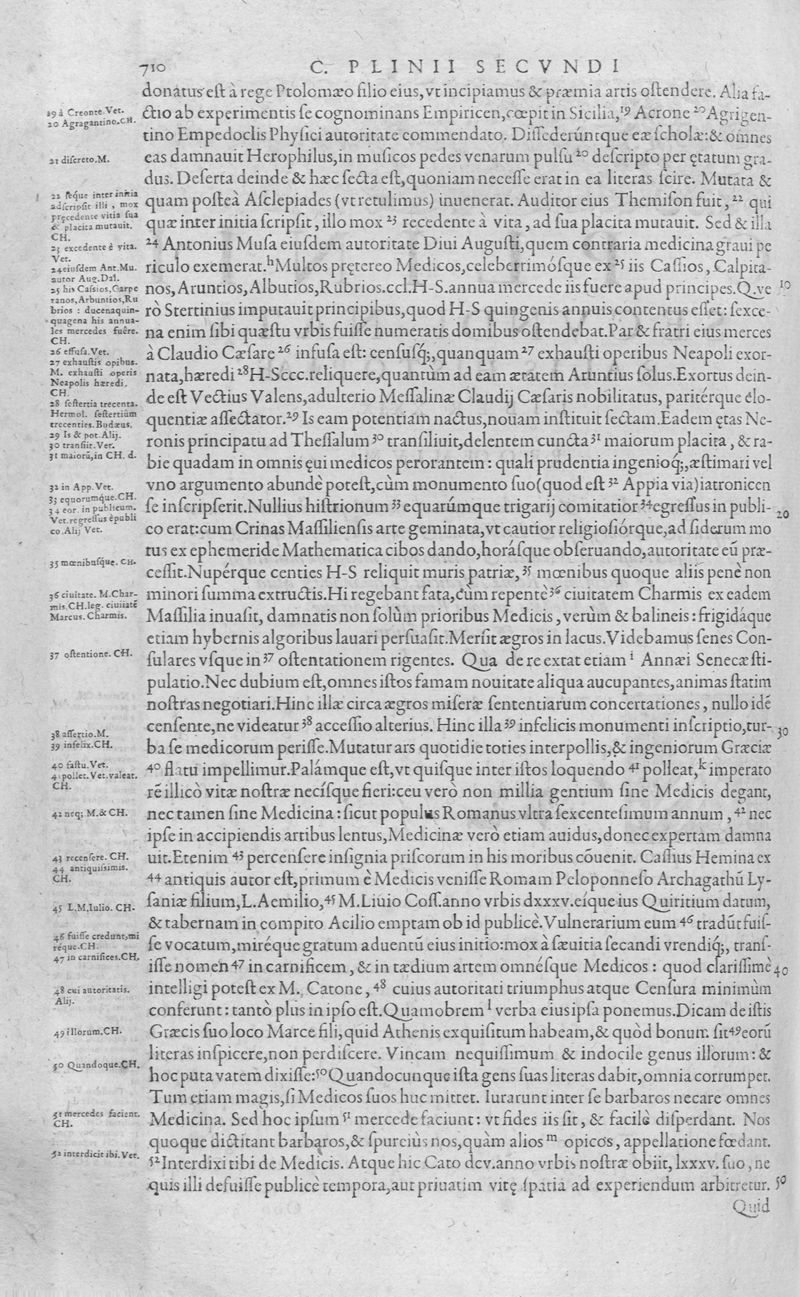 710 C. PLINII SECVNDI
donatus est à rege Ptolomæo filio eius, vt incipiamus & præmia artis ostendere. Alia fa-
ctio ab experimentis se cognominans Empiricen, cœpit in Sicilia, 19 Acrone 20 Agrigen-
tino Empedoclis Physici autoritate commendato. Dissederúntque eæ scholæ: & omnes
eas damnauit Herophilus, in musicos pedes venarum pulsu 20 descripto per ętatum gra-
dus. Deserta deinde & hæc secta est, quoniam necesse erat in ea literas scire. Mutata &
quam posteà Asclepiades (vt retulimus) inuenerat. Auditor eius Themison fuit, 22 qui
quæ inter initia scripsit, illo mox 23 recedente à vita, ad sua placita mutauit. Sed & illa
24 Antonius Musa eiusdem autoritate Diui Augusti, quem contraria medicina graui pe
riculo exemerat. h Multos prętereo Medicos, celeberrimósque ex 25 iis Cassios, Calpita-
nos, Aruntios, Albutios, Rubrios. ccl. H-S. annua mercede iis fuere apud principes. Q. ve 10
rò Stertinius imputauit principibus, quod H-S quingenis annuis contentus esset: sexce-
na enim sibi quæstu vrbis fuisse numeratis domibus ostendebat. Par & fratri eius merces
à Claudio Cæsare 26 infusa est: censusq;, quanquam 27 exhausti operibus Neapoli exor-
nata, hæredi 28 H-S ccc. reliquere, quantùm ad eam ætatem Aruntius solus. Exortus dein-
de est Vectius Valens, adulterio Messalinæ Claudij Cæsaris nobilitatus, paritérque elo-
quentiæ assectator. 29 Is eam potentiam nactus, nouam instituit sectam. Eadem ętas Ne-
ronis principatu ad Thessalum 30 transiliuit, delentem cuncta 31 maiorum placita, & ra-
bie quadam in omnis ęui medicos perorantem: quali prudentia ingenioq;, æstimari vel
vno argumento abundè potest, cùm monumento suo (quod est 32 Appia via) iatronicen
se inscripserit. Nullius histrionum 33 equarúmque trigarij comitatior 34 egressus in publi- 20
co erat: cum Crinas Massiliensis arte geminata, vt cautior religiosiórque, ad siderum mo
tus ex ephemeride Mathematica cibos dando, horásque obseruando, autoritate eū præ-
cessit. Nupérque centies H-S reliquit muris patriæ, 35 mœnibus quoque aliis penè non
minori summa extructis. Hi regebant fata, cùm repentè 36 ciuitatem Charmis ex eadem
Massilia inuasit, damnatis non solùm prioribus Medicis, verùm & balineis: frigidáque
etiam hybernis algoribus lauari persuasit. Mersit ægros in lacus. Videbamus senes Con-
sulares vsque in 37 ostentationem rigentes. Qua de re extat etiam i Annæi Senecæ sti-
pulatio. Nec dubium est, omnes istos famam nouitate aliqua aucupantes, animas statim
nostras negotiari. Hinc illæ circa ægros miseræ sententiarum concertationes, nullo idē
censente, ne videatur 38 accessio alterius. Hinc illa 39 infelicis monumenti inscriptio, tur- 30
ba se medicorum periisse. Mutatur ars quotidie toties interpollis, & ingeniorum Græciæ
40 flatu impellimur. Palámque est, vt quisque inter istos loquendo 41 polleat, k imperato
rē illicò vitæ nostræ necísque fieri: ceu verò non millia gentium sine Medicis degant,
nec tamen sine Medicina: sicut populus Romanus vltra sexcentesimum annum, 42 nec
ipse in accipiendis artibus lentus, Medicinæ verò etiam auidus, donec expertam damna
uit. Etenim 43 percensere insignia priscorum in his moribus cōuenit. Cassius Hemina ex
44 antiquis autor est, primum è Medicis venisse Romam Peloponneso Archagathū Ly-
saniæ filium, L. Aemilio, 45 M. Liuio Coss. anno vrbis dxxxv. eíque ius Quiritium datum,
& tabernam in compito Acilio emptam ob id publicè. Vulnerarium eum 46 tradūt fuis-
se vocatum, miréque gratum aduentū eius initio: mox à sæuitia secandi vrendiq;, trans-
isse nomen 47 in carnificem, & in tædium artem omnésque Medicos: quod clarissimè 40
intelligi potest ex M. Catone, 48 cuius autoritati triumphus atque Censura minimùm
conferunt: tantò plus in ipso est. Quamobrem l verba eius ipsa ponemus. Dicam de istis
Græcis suo loco Marce fili, quid Athenis exquisitum habeam, & quòd bonum sit 49 eorū
literas inspicere, non perdiscere. Vincam nequissimum & indocile genus illorum: &
hoc puta vatem dixisse: 50 Quandocunque ista gens suas literas dabit, omnia corrumpet.
Tum etiam magis, si Medicos suos huc mittet. Iurarunt inter se barbaros necare omnes
Medicina. Sed hoc ipsum 51 mercede faciunt: vt fides iis sit, & facilè disperdant. Nos
quoque dictitant barbaros, & spurciùs nos, quàm alios m opicos, appellatione fœdant.
52 Interdixi tibi de Medicis. Atque hic Cato dcv. anno vrbis nostræ obiit, lxxxv. suo, ne
quis illi defuisse publicè tempora, aut priuatim vitę spatia ad experiendum arbitretur. 50
Quid
19 à Creonte. Vet.
20 Agragantino. CH.
21 discreto. M.
22 séque inter initia
adscripsit illi, mox
precedente vitia sua
& placita mutauit.
CH.
23 excedente è vita.
Vet.
24 eiusdem Ant. Mu.
autor Aug. Dal.
25 his Cassios, Carpe
tanos, Arbuntios, Ru
brios: ducenaquin-
quagena his annua-
les mercedes fuêre.
CH.
26 effusa. Vet.
27 exhaustis opibus.
M. exhausti operis
Neapolis hæredi.
CH.
28 sestertia trecenta.
Hermol. sestertiûm
trecenties. Budæus.
29 Is & pot. Alij.
30 transiit. Ver.
31 maiorū, in CH. d.
32 in App. Vet.
33 equorumque. CH.
34 eor. in publicum.
Vet. regressus è publi
co. Alij Vet.
35 mœnibusque. CH.
36 ciuitate. M. Char-
mis. CH. leg. ciuitatē
Marcus. Charmis.
37 ostentione. CH.
38 assertio. M.
39 infelix. CH.
40 fastu. Vet.
41 pollet. Vet. valeat.
CH.
42 neq; M. & CH.
43 recensere. CH.
44 antiquissimis.
CH.
45 L. M. Iulio. CH.
46 fuisse credunt, mi
réque. CH.
47 in carnifices. CH.
48 cui autoritatis.
Alij.
49 illorum. CH.
50 Quandoque. CH.
51 mercedes facient.
CH.
52 interdicit ibi. Vet.